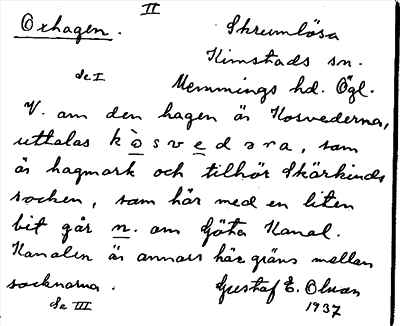 II
Oxhagen. Skrumlösa
Kimstads sn.
Se I Memmings hd. Ögl.
V. om den hagen är Kosvederna,
uttalas kòsvedəra, som
är hagmark och tillhör Skärkinds
socken, som här med en liten
bit går n. om Göta Kanal.
Kanalen är annars här gräns mellan
socknarna. Gustaf E. Olsson
Se III 1937